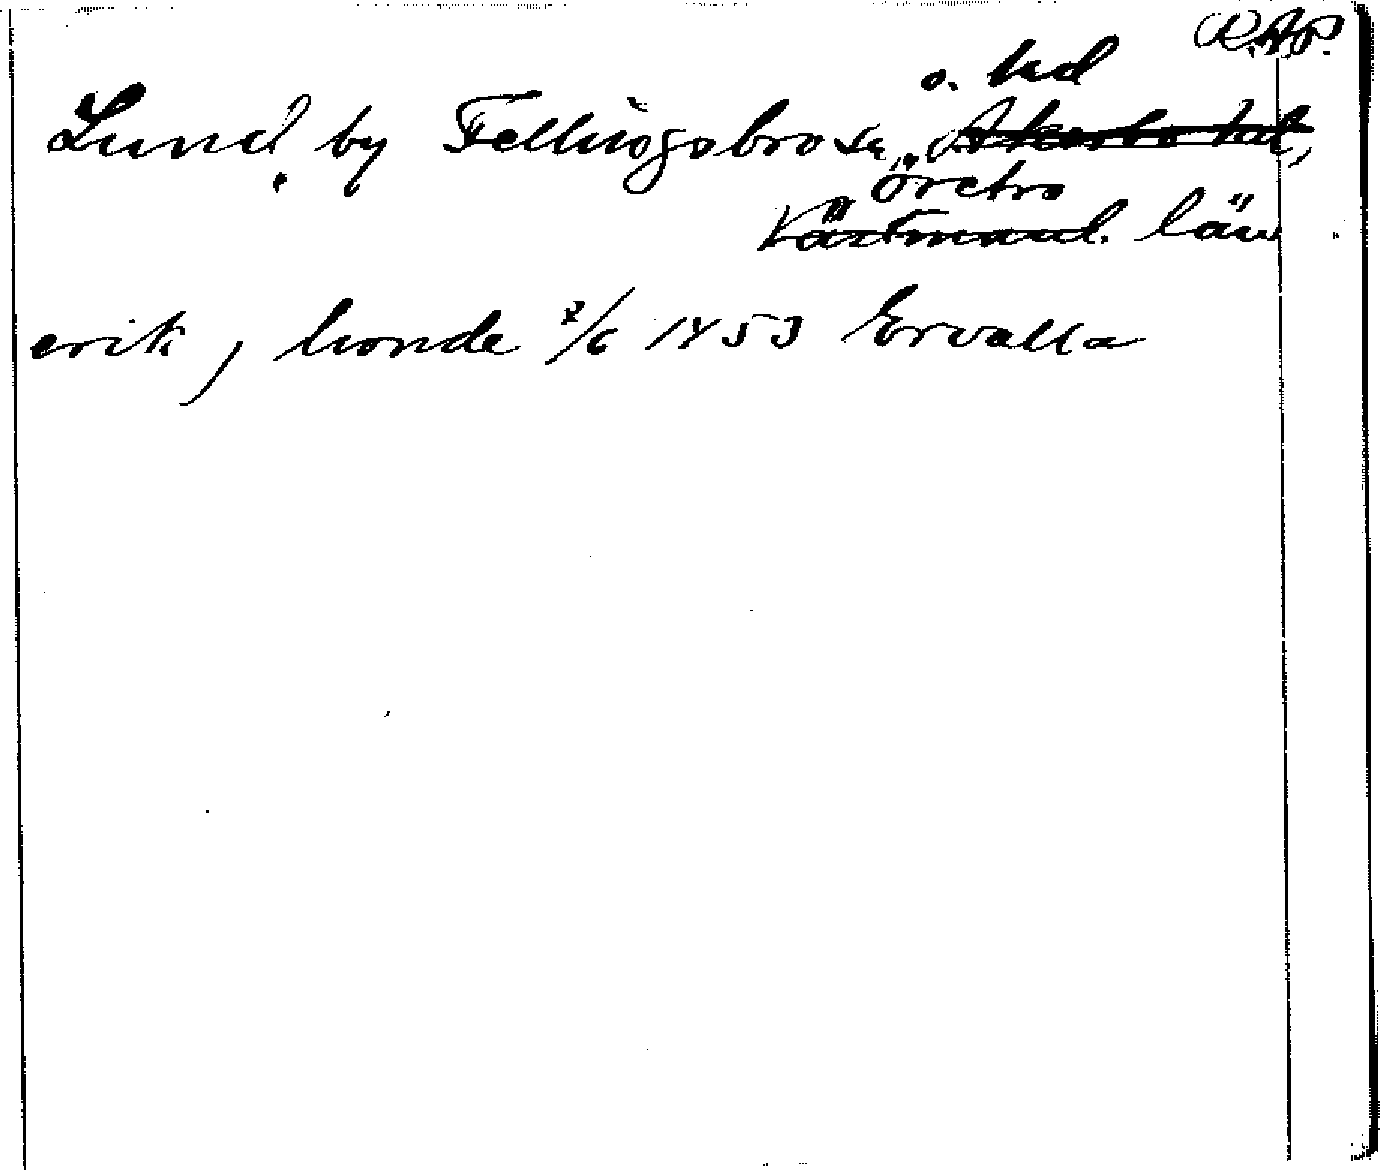 R.A.P.
o. hd
Lund, by Fellingsbro sn, Akerbo hd,
Örebro
Västmanl. län
erik, bonde 2/6 1453 Ervalla